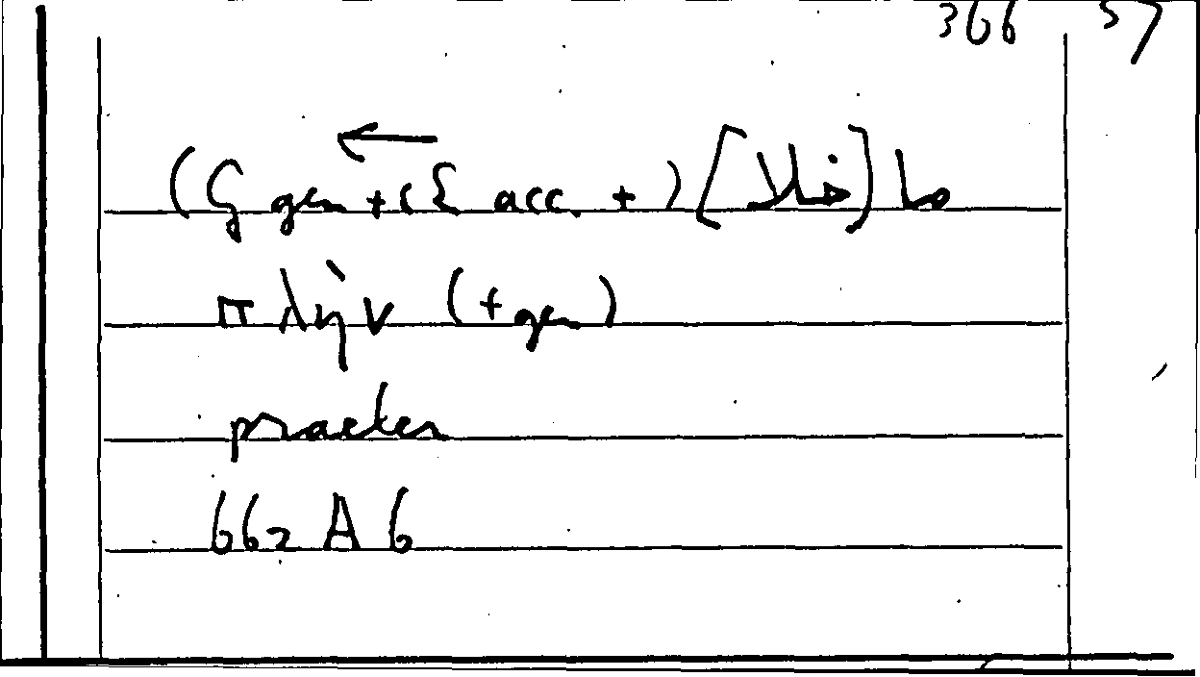 366 57
ما [خلا] ( + acc. + gen
πλὴν (+ gen)
praeter
662 A 6